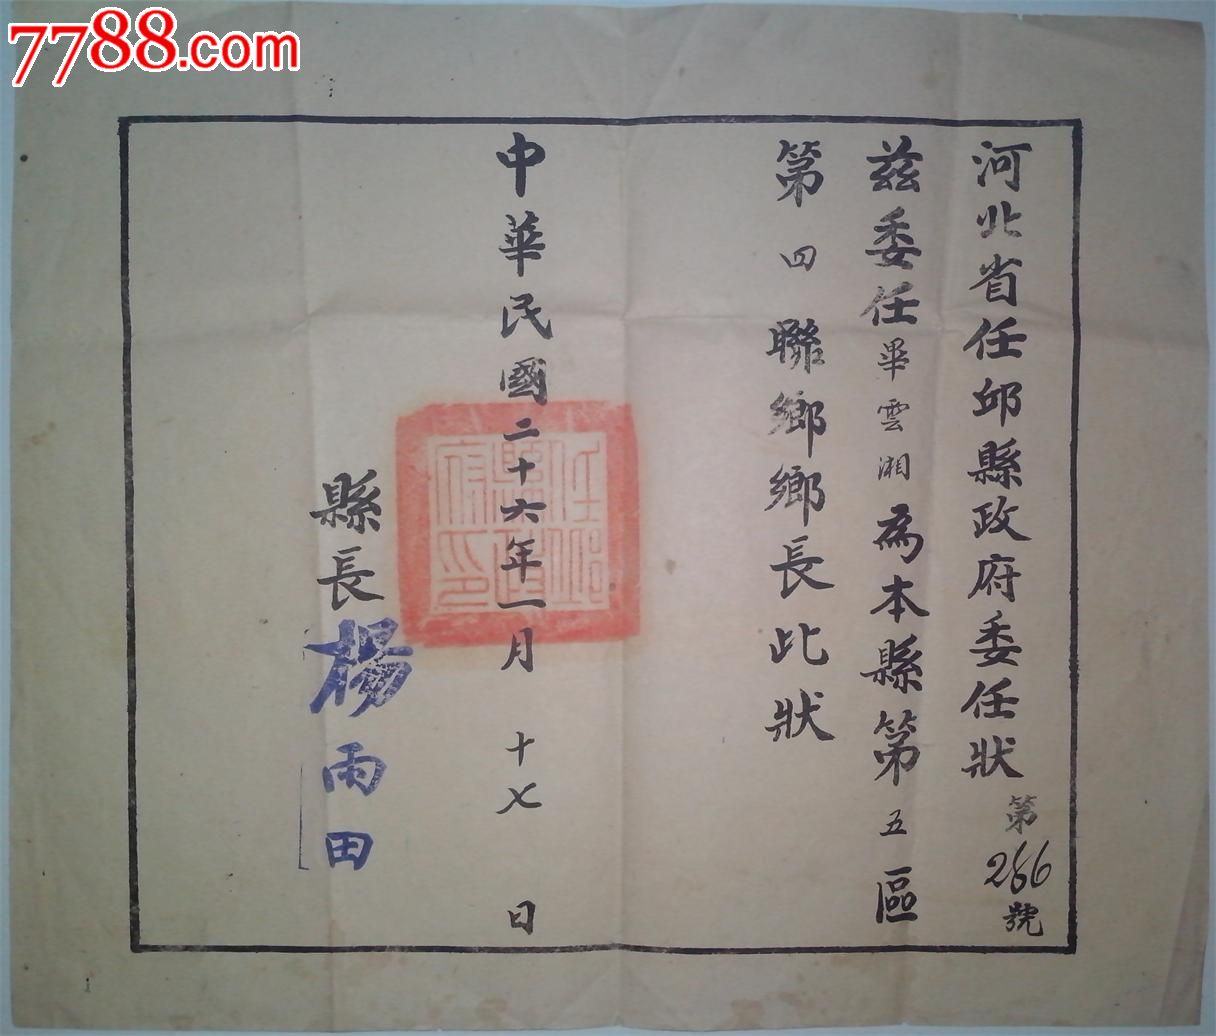 7788.com
河北省任邱縣政府委任狀
第266號
茲委任畢雲湘為本縣第五區
第四聯鄉鄉長此狀
中華民國二十六年一月十七日
任邱縣政府印
縣長楊雨田